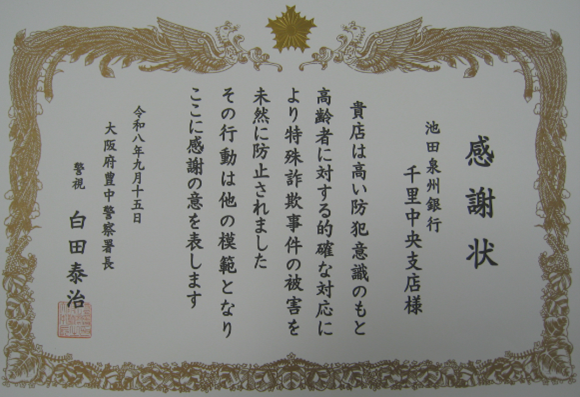 感謝状
池田泉州銀行
千里中央支店様
貴店は高い防犯意識のもと
高齢者に対する的確な対応に
より特殊詐欺事件の被害を
未然に防止されました
その行動は他の模範となり
ここに感謝の意を表します
令和八年九月十五日
大阪府豊中警察署長
警視 白田泰治